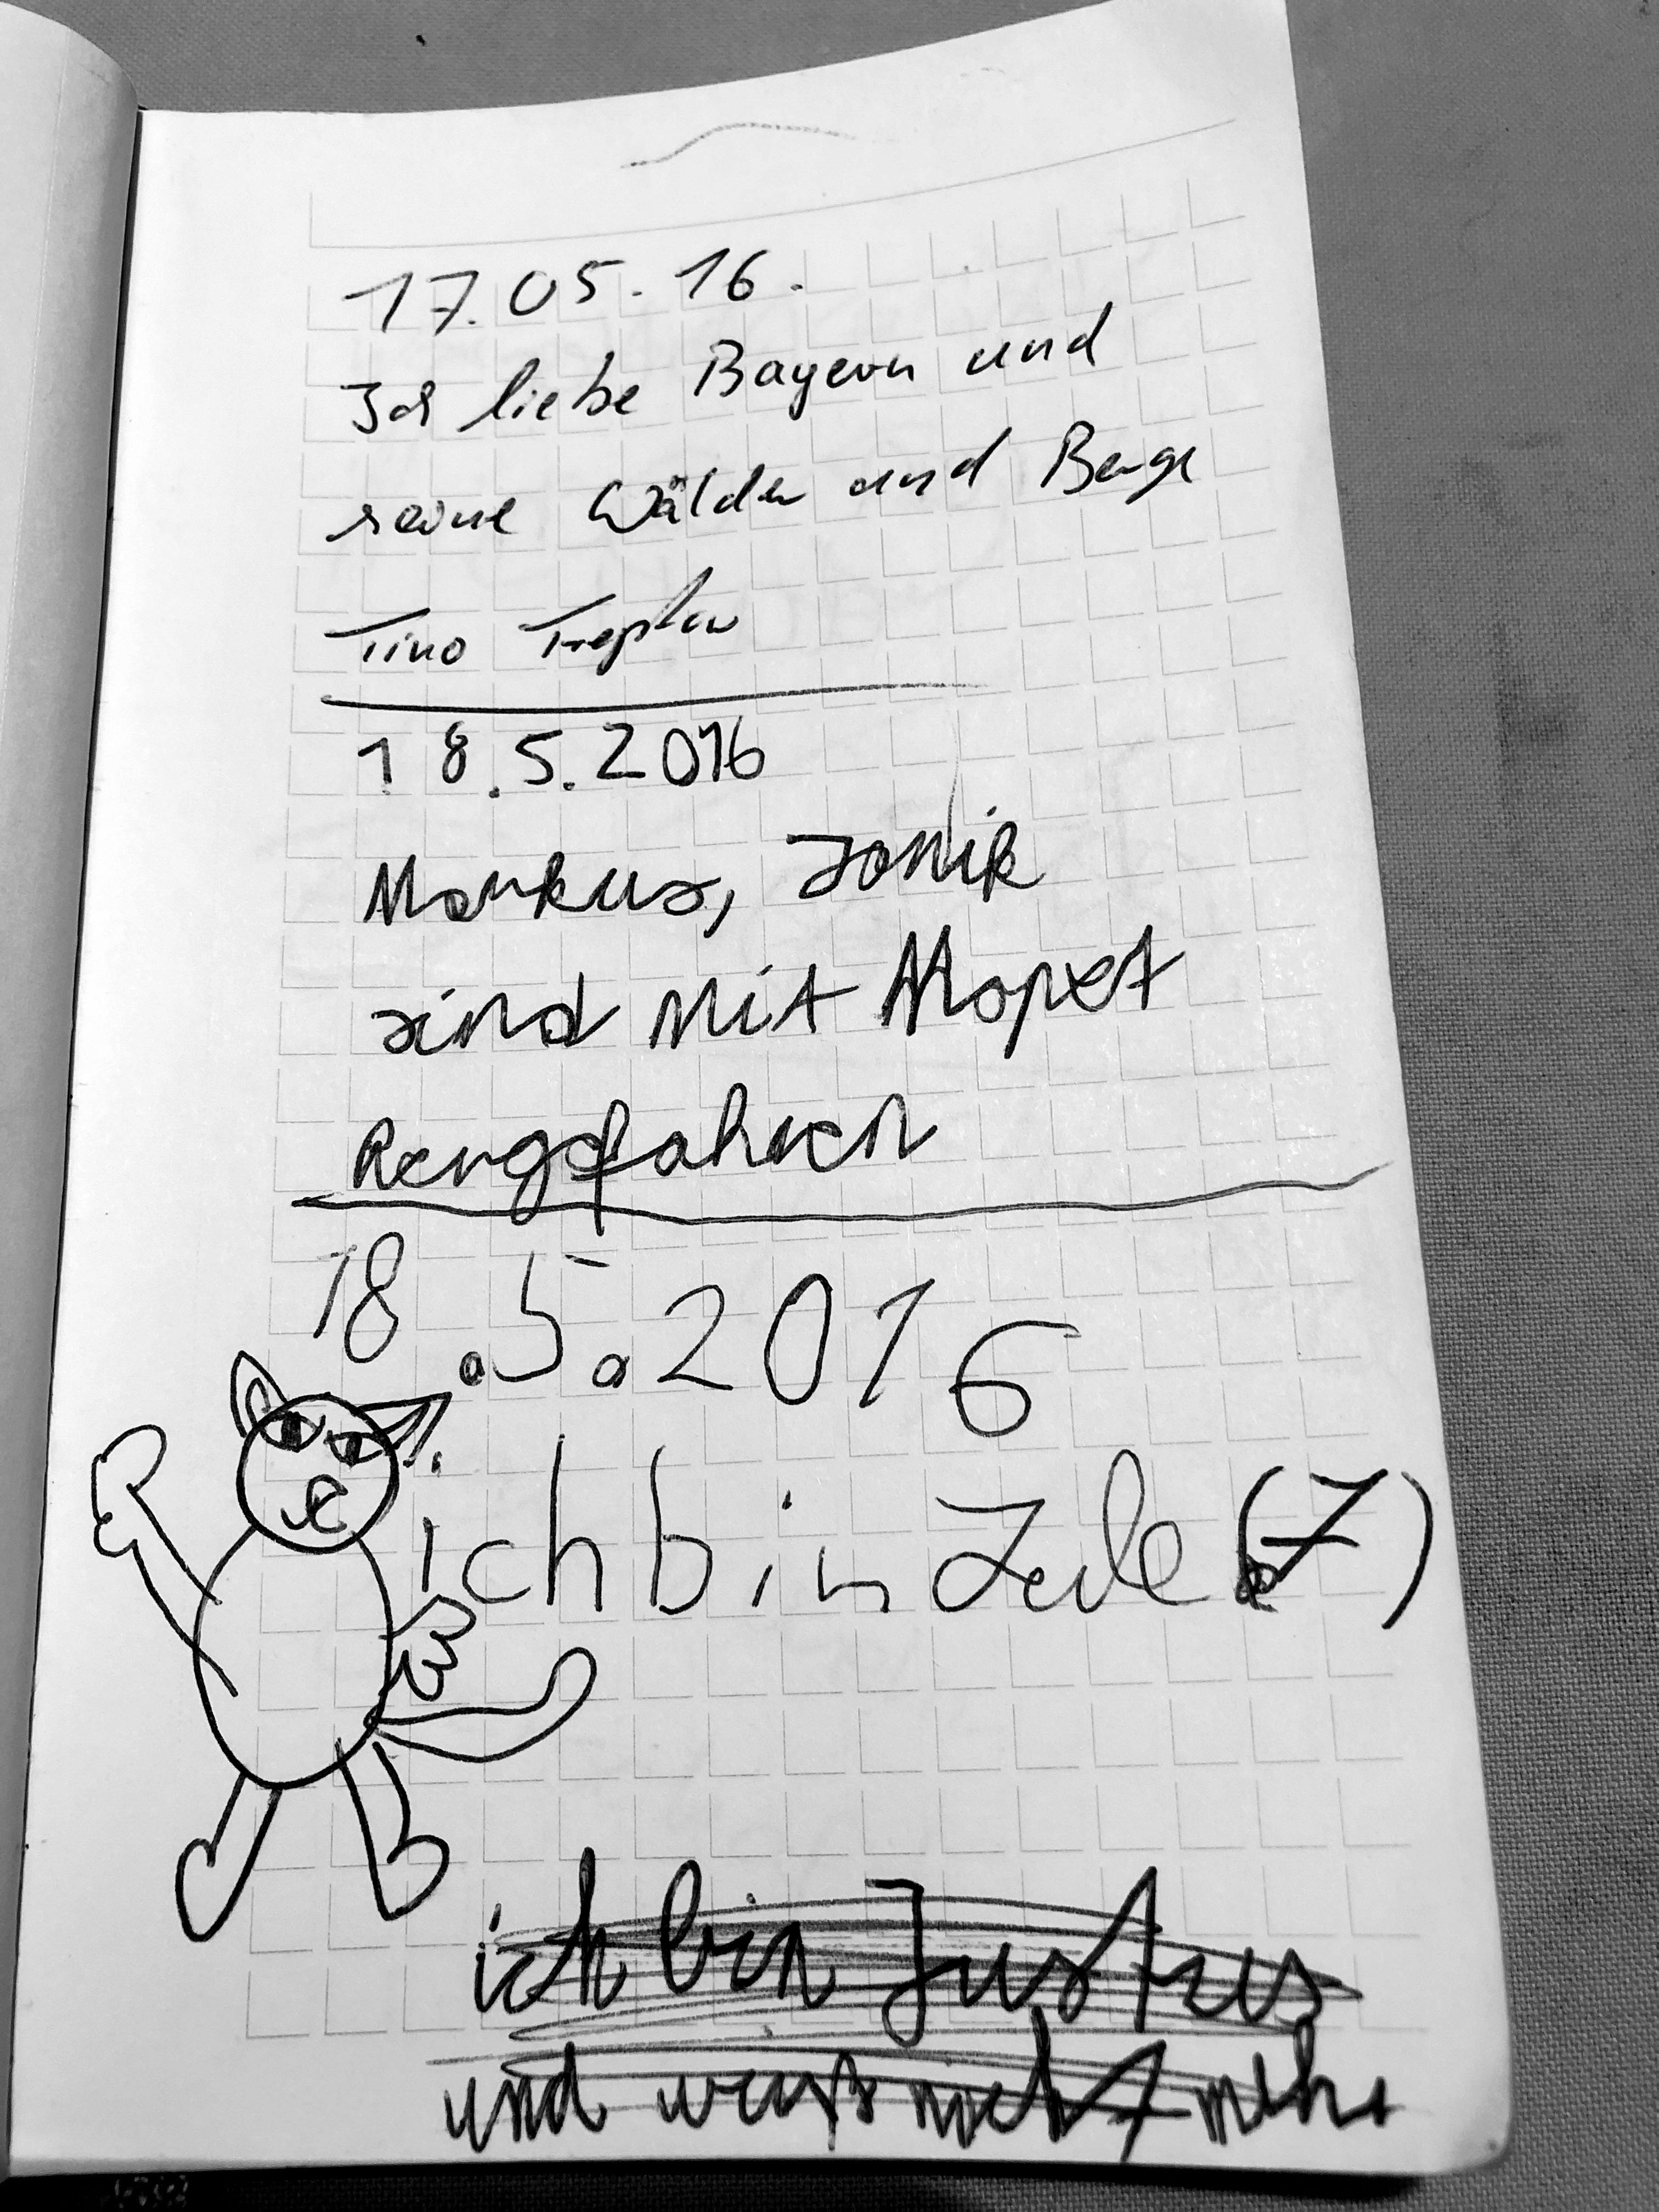 17.05.16.
Ich liebe Bayern und
seine Wälder und Berge
Tino Treptow
18.5.2016
Markus, Janik
sind mit Mopet
Rengefahren
18.5.2016
ich bin Jule (7)
ich bin Justus
und weiß nicht mehr